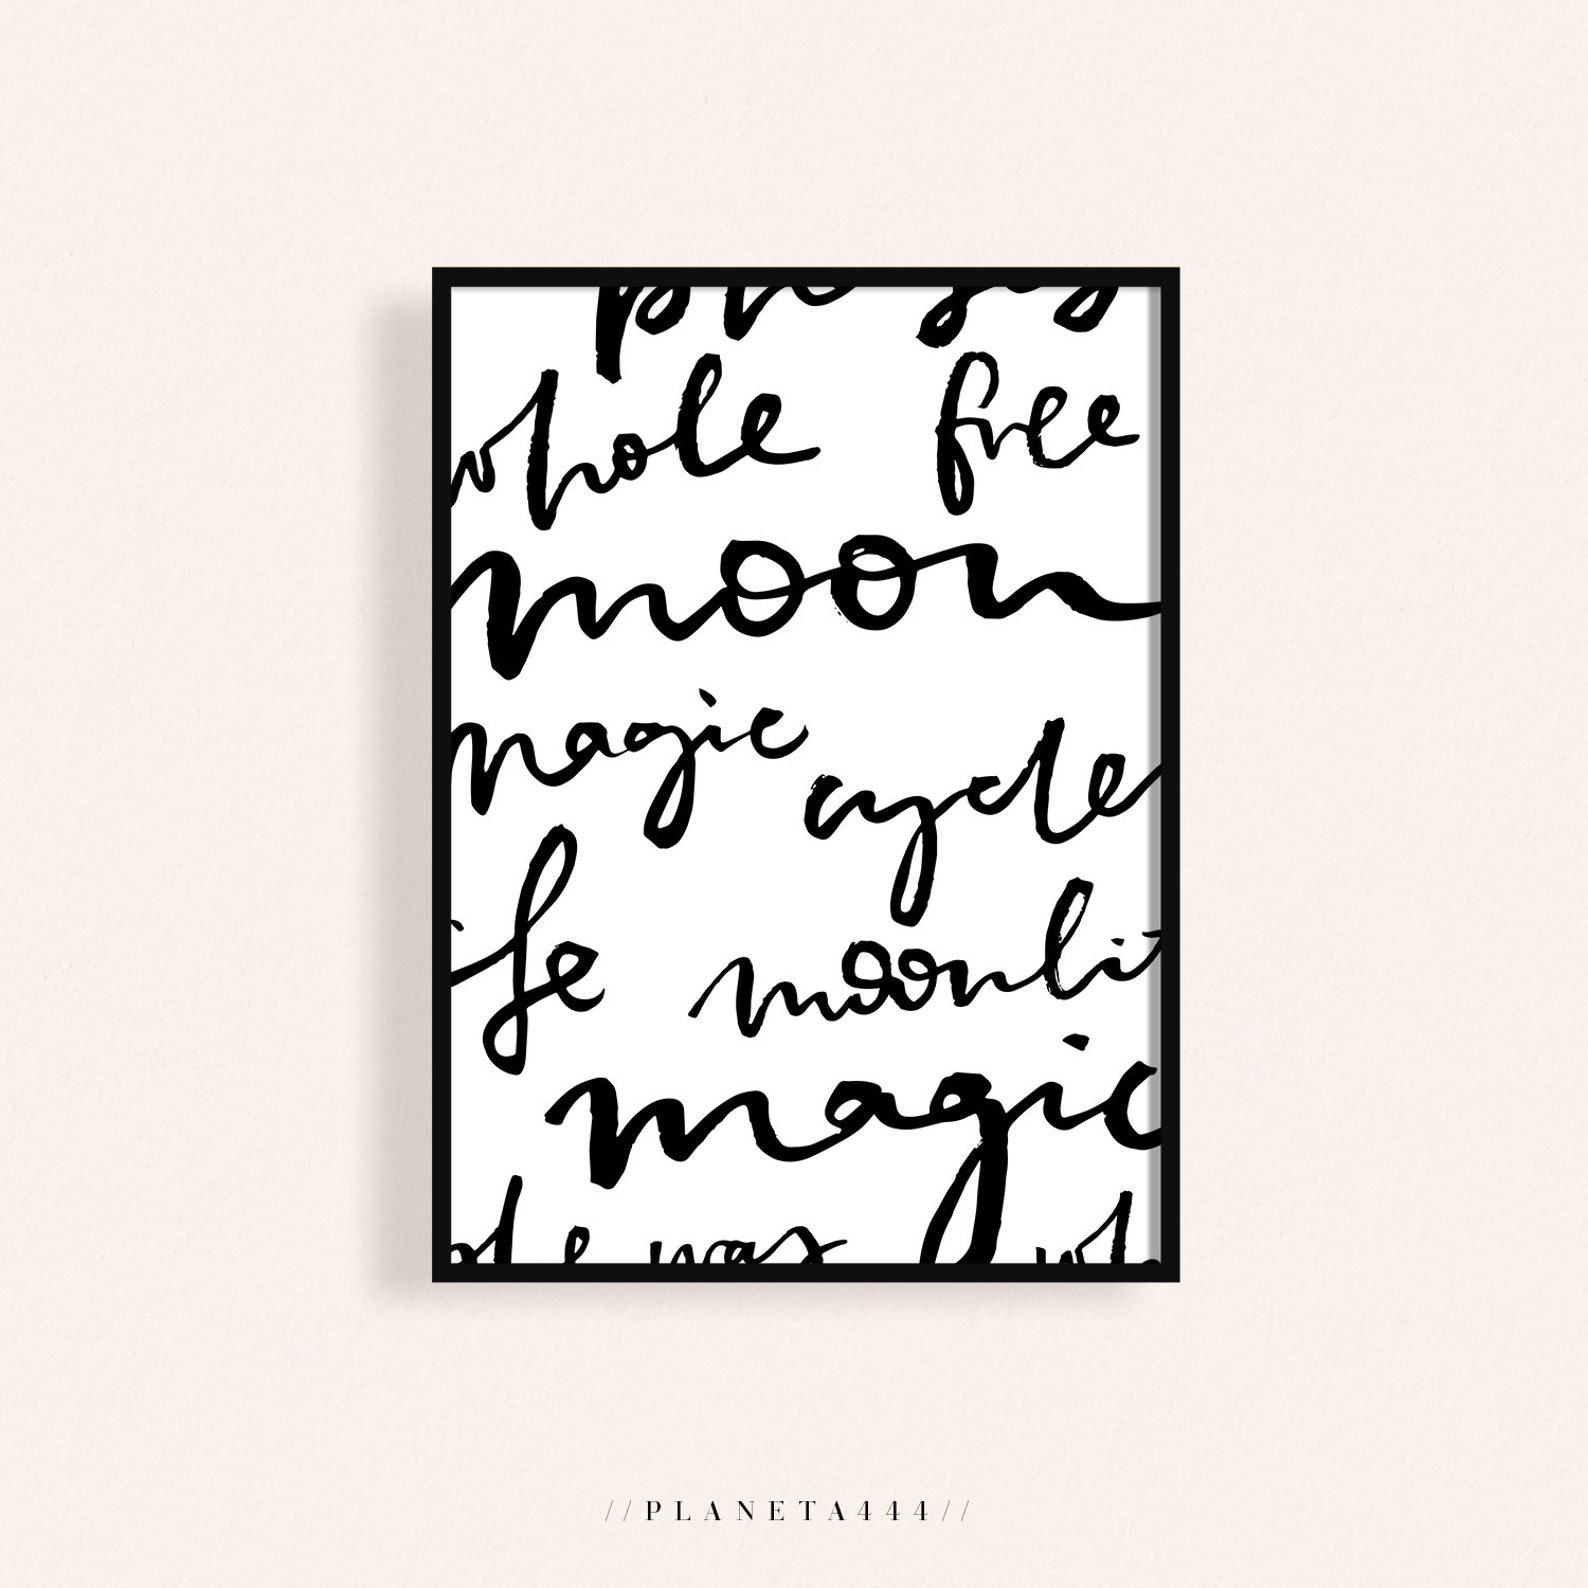 whole free
moon
magic
cycle
moonlit
magic
was
//PLANETA444//